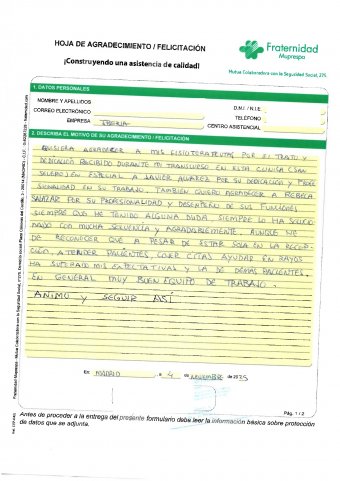 HOJA DE AGRADECIMIENTO / FELICITACIÓN
¡Construyendo una asistencia de calidad!
Fraternidad
Muprespa
Mutua Colaboradora con la Seguridad Social, 275
1. DATOS PERSONALES
NOMBRE Y APELLIDOS
D.N.I. / N.I.E.
CORREO ELECTRÓNICO
TELÉFONO
EMPRESA IBERIA
CENTRO ASISTENCIAL
2. DESCRIBA EL MOTIVO DE SU AGRADECIMIENTO / FELICITACIÓN
QUISIERA AGRADECER A MIS FISIOTERAPEUTAS POR EL TRATO Y
DEDICACIÓN RECIBIDO DURANTE MI TRANSCURSO EN ESTA CLINICA
EN ESPECIAL A JAVIER ALVAREZ POR SU DEDICACIÓN Y PROFE
SIONALIDAD EN SU TRABAJO. TAMBIEN QUIERO AGRADECER A REBECA
SALAZAR POR SU PROFESIONALIDAD Y DESEMPEÑO DE SUS FUNCIONES
SIEMPRE QUE HE TENIDO ALGUNA DUDA SIEMPRE LO HA SOLUCIO
NADO CON MUCHA Y AGRADABLEMENTE. AUNQUE HE
DE RECONOCER QUE A PESAR DE ESTAR SOLA EN LA RECEP
CIÓN, ATENDER PACIENTES, COGER CITAS AYUDAR EN RAYOS
HA SUPERADO MIS EXPECTATIVAS Y LA DE DEMÁS PACIENTES.
EN GENERAL MUY BUEN EQUIPO DE TRABAJO.
ANIMO Y SEGUIR ASÍ
En MADRID, a 4 de NOVIEMBRE de 2025
Pág. 1 / 2
Antes de proceder a la entrega del presente formulario debe leer la información básica sobre protección
de datos que se adjunta.